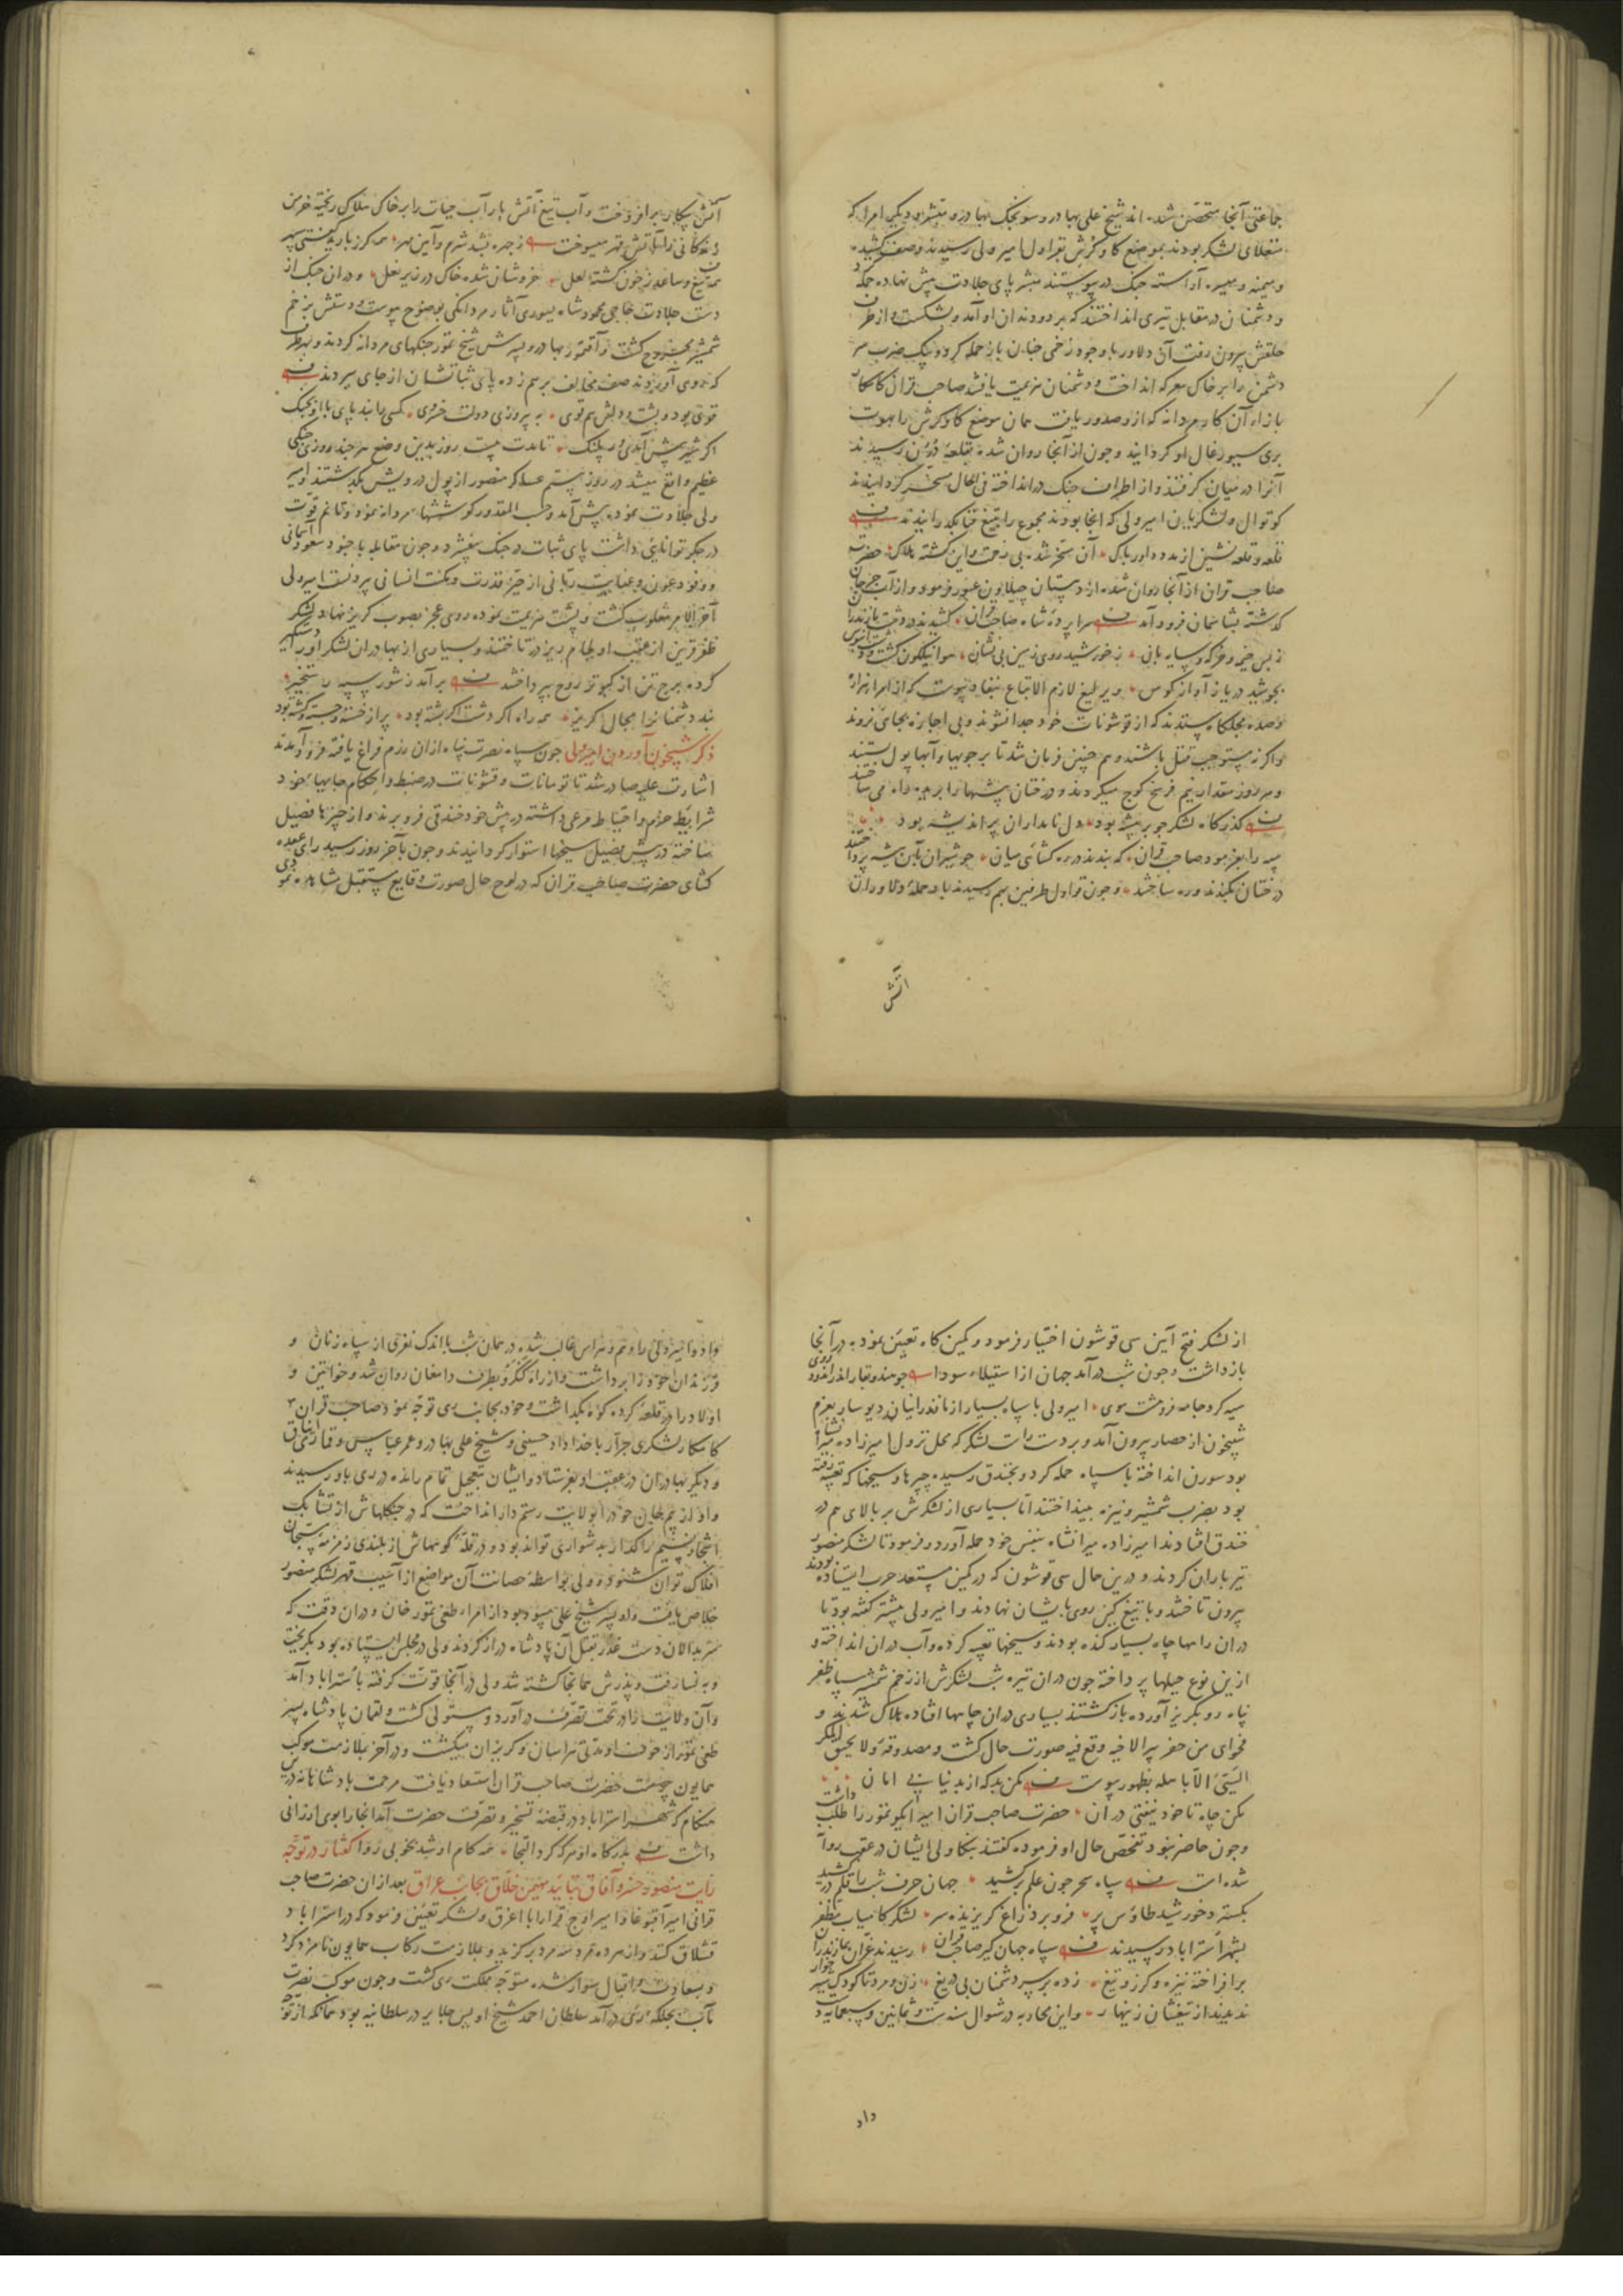 جماعتی آنجا متحصن شده اند شیخ علی بهادر و سونجک بهادر و مبشر و دیگر امرا که
منغلای لشکر بودند بموضع کاوکرش بقراول امیر ولی رسیدند و صف کشیده
و میمنه و میسره آراسته جنک در پیوستند مبشر پای جلادت پیش نهاده حمله کرد
و دشمنان در مقابل تیری انداختند که بر دو دندان او آمد و بشکست و از طرف
حلقش بیرون رفت آن دلاور با وجود زخمی چنان باز حمله کرد و بیک ضرب سر
دشمن را بر خاک معرکه انداخت و دشمنان هزیمت یافتند صاحب قران کامکار
بازاء آن کار مردانه که ازو صدور یافت همان موضع کاوکرش را بهوت
بری سیورغال او کردانید و چون از آنجا روان شده بقلعه درون رسیدند
آنرا در میان کرفتند و از اطراف جنک در انداخته فی الحال مسخر کردانیدند
کوتوال و لشکریان امیر ولی که انجا بودند مجموع را بتیغ فنا بکذرانیدند
قلعه و قلعه نشین از مدد داور پاک آن مسخر شد بی زحمت و این کشته هلاک حضرت
صاحب قران از آنجا روان شده از دهستان چیلاون عبور فرمود و از آب جرجان
کذشته بشاسمان فرود آمد سراپرده شاه صاحب قران کشیدند در دشت مازندران
ز بس خیمه و خرکه و سایه بان ز خورشید روی زمین بی نشان هوا نیلکون کشت و دشت آبنوس
بجوشید دریا ز آواز کوس و یرلیغ لازم الاتباع بنفاد پیوست که از امرا هزاره
و صده مجلکا بستدند که از قوشونات خود جدا نشوند و بی اجازه بجائی نروند
و اکر نه مستوجب قتل باشند و هم چنین فرمان شد تا بر جویها و آبها پول بستند
و هر روز مقدار نیم فرسخ کوچ میکردند و درختان بیشها را بریده راه می ساختند
کذرکاه لشکر چو بر بیشه بود دل نامداران پر اندیشه بود
سپه را بفرمود صاحب قران که بندند در ره کشائی میان چو شیران بآن بیشه پرداختند
درختان بکندند و ره ساختند و چون قراول طرفین بهم رسیدند باد حمله دلاوران
اتش
آتش پیکار بر افروخت و آب تیغ آتش بار آب حیات را بر خاک هلاک ریخته خرمن
زندکانی را بآتش قهر میسوخت ز چهره بشد شرم و آیین مهر همی کرز بارید کفتی سپهر
همه تیغ و ساعد ز خون کشته لعل خروشان شده خاک در زیر نعل و دران جنک از
دست جلادت حاجی محمود شاه یسوری آثار مردانکی بوضوح پیوست و دستش بزخم
شمشیر مجروح کشت و آقتمور بهادر و پسرش شیخ تمور جنکهای مردانه کردند و بهر طرف
که روی آوردند صف مخالف بر هم زده پای ثباتشان از جای ببردند
قوی بود و پشت و دلش هم قوی به پیروزی دولت خسروی کسی را نبد پای با او بجنک
اکر شیر پیش آمدی ور پلنک تا مدت بیست روز بدین وضع هر چند روزی جنکی
عظیم واقع میشد در روز بیستم عساکر منصور از پول درویش بکذشتند و امیر
ولی جلادت نموده پیش آمد و حسب المقدور کوششهاء مردانه نمود و تا غم قوت
در جکر توانائی داشت پای ثبات در جنک بفشرد و چون مقابله با جنود سعود آسمانی
و وفود عون و عنایت ربانی از حیز قدرت و مکنت انسانی بیرونست امیر ولی
آخر الامر مغلوب کشت و پشت هزیمت نموده روی عجز بصوب کریز نهاد و لشکر
ظفر قرین از عقب او لجام ریز در تاختند و بسیاری از بهادران لشکر او را دستکیر
کرده برج تن از کبوتر روح بپرداختند برآمد ز شور سپه رستخیز
نبد دشمنانرا مجال کریز همه راه اکر دشت اکر پشته بود پر از خسته و جسته و کشته بود
ذکر شبیخون آوردن امیر ولی چون سپاه نصرت پناه ازان رزم فراغ یافته فرود آمدند
اشارت علیه صادر شد تا تومانات و قشونات در ضبط و احکام جایهاء خود
شرایط حزم و احتیاط مرعی داشته در پیش خود خندقی فرو بردند و از چپرها فصیل
ساخته در پیش فصیل سیخها استوار کردانیدند و چون بآخر روز رسید رای عقده
کشای حضرت صاحب قران که در لوح حال صورت وقایع مستقبل مشاهده نمودی
از لشکر فتح آیین سی قوشون اختیار فرمود و کمین کاه تعیین نموده در آنجا
بازداشت و چون شب درآمد جهان از استیلاء سودا چو هندو بقار اندر اندود روی
سیه کرد جامه فروهشت موی امیر ولی با سپاه بسیار از مازندرانیان دیو سار بعزم
شبیخون از حصار بیرون آمد و بر دست راست لشکر که محل نزول امیرزاده میرانشاه
بود سورن انداخته با سپاه حمله کرد و بخندق رسیده چپرها و سیخها که تعبیه رفته
بود بضرب شمشیر و نیزه بینداختند اما بسیاری از لشکرش بر بالای هم در
خندق افتادند امیرزاده میرانشاه بنفس خود حمله آورد و فرمود تا لشکر منصور
تیر باران کردند و درین حال سی قوشون که در کمین مستعد حرب ایستاده بودند
بیرون تاختند و با تیغ کین روی بایشان نهادند و امیر ولی پیشتر کفته بود تا
دران راهها چاه بسیار کنده بودند و سیخها تعبیه کرده و آب دران انداخته و
ازین نوع حیلها پرداخته چون دران تیره شب لشکرش از زخم شمشیر سپاه ظفر
پناه رو بکریز آورده باز کشتند بسیاری دران چاهها افتاده هلاک شدند و
فحوای من حفر بیرا لاخیه وقع فیه صورت حال کشت و مصدوقه ولا یحیق المکر
السیئ الا باهله بظهور پیوست مکن بد که از بد نیابی امان
مکن چاه تا خود نیفتی در ان حضرت صاحب قران امیر ایکو تمور را طلب داشت
و چون حاضر نبود تفحص حال او فرموده کفتند بتکاولی ایشان در عقب روان
شده است سپاه سحر چون علم برکشید جهان حرف شب را قلم درکشید
بکسترد خورشید طاؤس پر فرو برد زاغ کریزنده سر لشکر کامیاب مظفر
بشهر استراباد رسیدند سپاه جهان کیر صاحب قران رسیدند غران بمازندران
برافراخته نیزه و کرز و تیغ زده بر سر دشمنان بی دریغ زن و مرد تا کودک شیر خوار
ندیدند از تیغشان زینهار و این محاربه در شوال سنه ست و ثمانین و سبعمایه د
داد
داد و امیر ولی را وهم و هراس غالب شده در همان شب با اندک نفری از سپاه زنان و
فرزندان خود را برداشت و از راه لنکرو بطرف دامغان روان شد و خواتین و
اولاد را در قلعه کرده کوه بکذاشت و خود بجانب ری توجه نمود صاحب قران
کامکار لشکری جرار با خداداد حسینی و شیخ علی بهادر و عمر عباس و قماری ایناق
و دیکر بهادران در عقب او بفرستاد و ایشان بتعجیل تمام رانده در ری باو رسیدند
و او از بیم جان خود را بولایت رستمدار انداخت که در جنکلهاش از تشابک
اشجار نسیم را کذار بدشواری تواند بود و در قله کوههاش از بلندی زمزمه تسبیح
افلاک توان شنود و ولی بواسطه حصانت آن مواضع از آسیب قهر لشکر منصور
خلاص یافت ولی پسر شیخ علی بیسود بود از امراء طغی تمور خان و دران وقت که
سربدالان دست غدر بقتل آن پادشاه دراز کردند ولی در مجلس ایستاده بود بکریخت
و به نسا رفت و پدرش همانجا کشته شد ولی در آنجا قوت کرفته باستراباد آمد
و آن ولایت را در تحت تصرف درآورد و مستولی کشت و لقمان پادشاه پسر
طغی تمور از خوف او مدتی هراسان و کریزان میکشت و در آخر بملازمت موکب
همایون پیوست حضرت صاحب قران استسعاد یافت مرحمت پادشاهانه درین
هنکام که شهر استراباد در قبضه تسخیر و تصرف حضرت آمد آنجا را بوی ارزانی
داشت بدرکاه او هر که کرد التجا همه کام او شد بخوبی روا کفتار در توجه
رایت منصور خسرو آفاق بتایید مهیمن خلاق بجانب عراق بعد ازان حضرت صاحب
قرانی امیر آقبوغا و امیر اوچ قرا را با اغرق و لشکر تعیین فرمود که در استراباد
قشلاق کنند و از هر ده مرد سه مرد برکزید و بملازمت رکاب همایون نامزد کرد
و بسعادت و اقبال سوار شده متوجه مملکت ری کشت و چون موکب نصرت
مآب بجلکه ری درآمد سلطان احمد شیخ اویس جلایر در سلطانیه بود همانکه از توجه